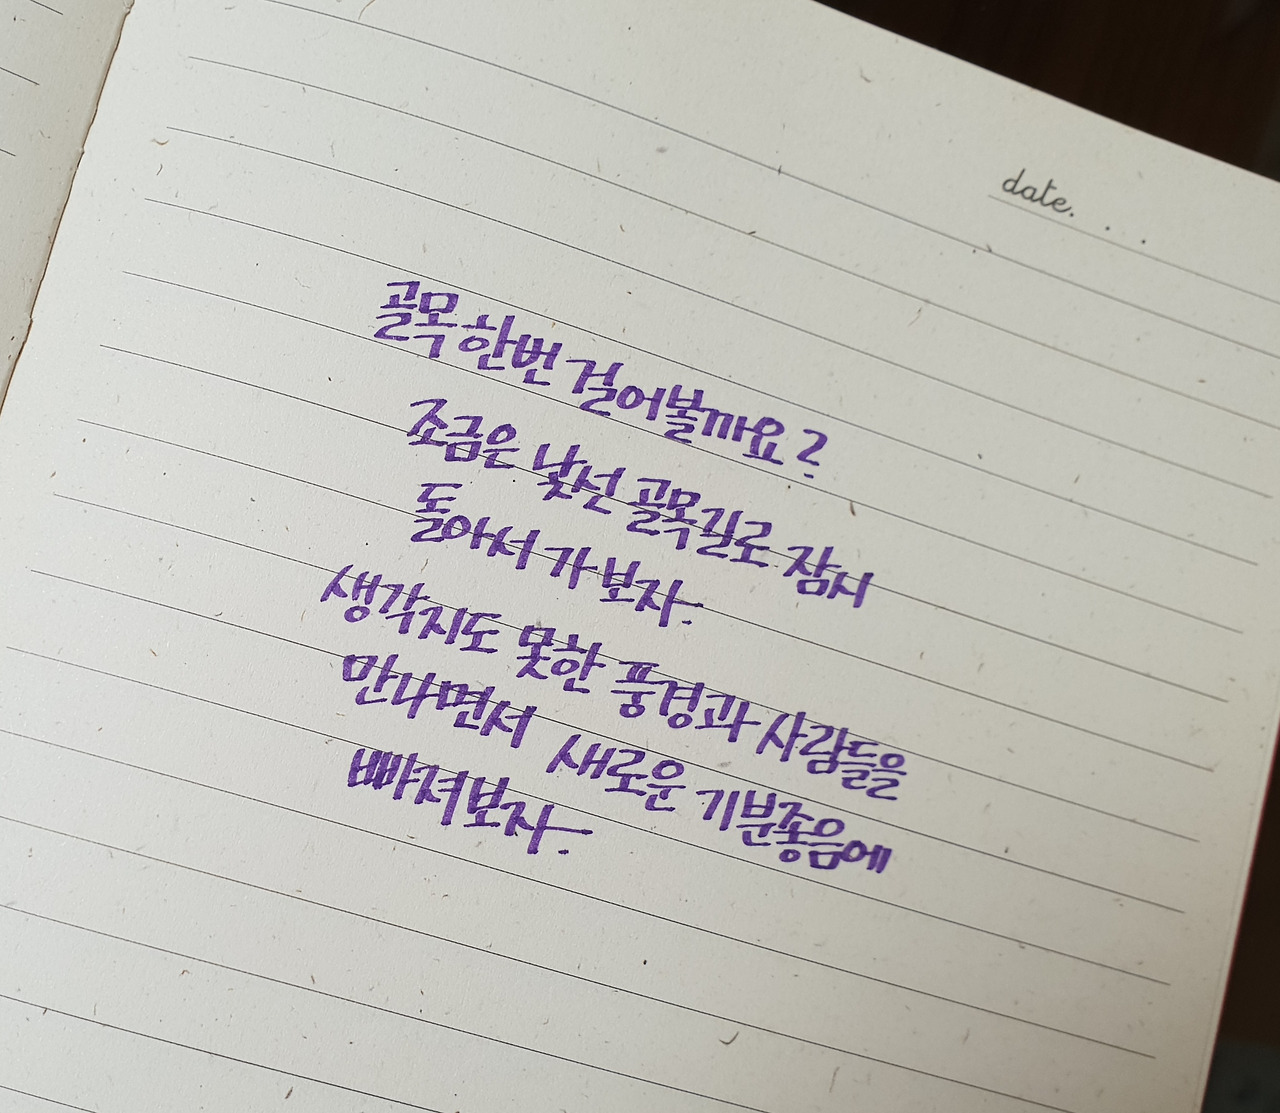 date. . .
골목 한번 걸어볼까요?
조금은 낯선 골목길로 잠시
돌아서 가 보자.
생각지도 못한 풍경과 사람들을
만나면서 새로운 기분좋음에
빠져보자.